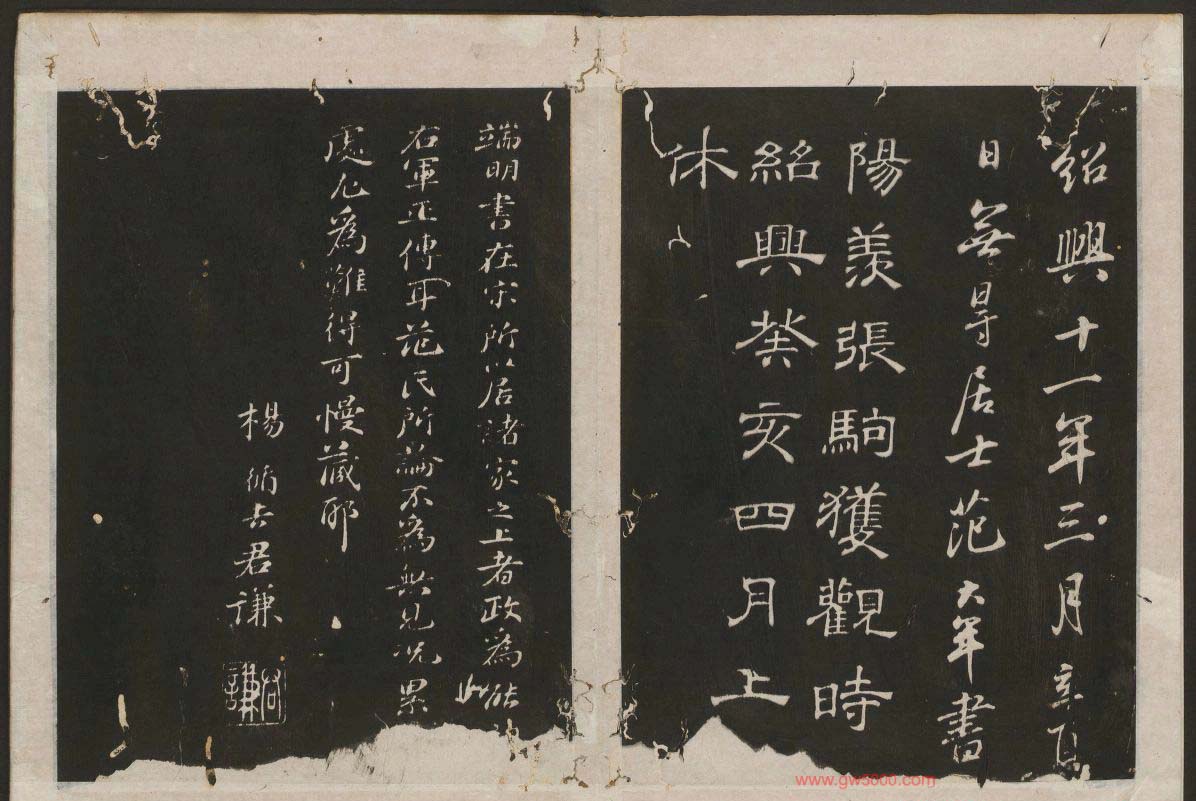 紹興十一年三月辛
日無㝵居士范大年書
陽羨張駒獲觀時
紹興癸亥四月上
休
端明書在宋所以居諸家之上者政為能
右軍正傳耳范氏所論不為無見况累
處尤為難得可慢藏耶
楊循吉君謙
君謙
www.gw5000.com